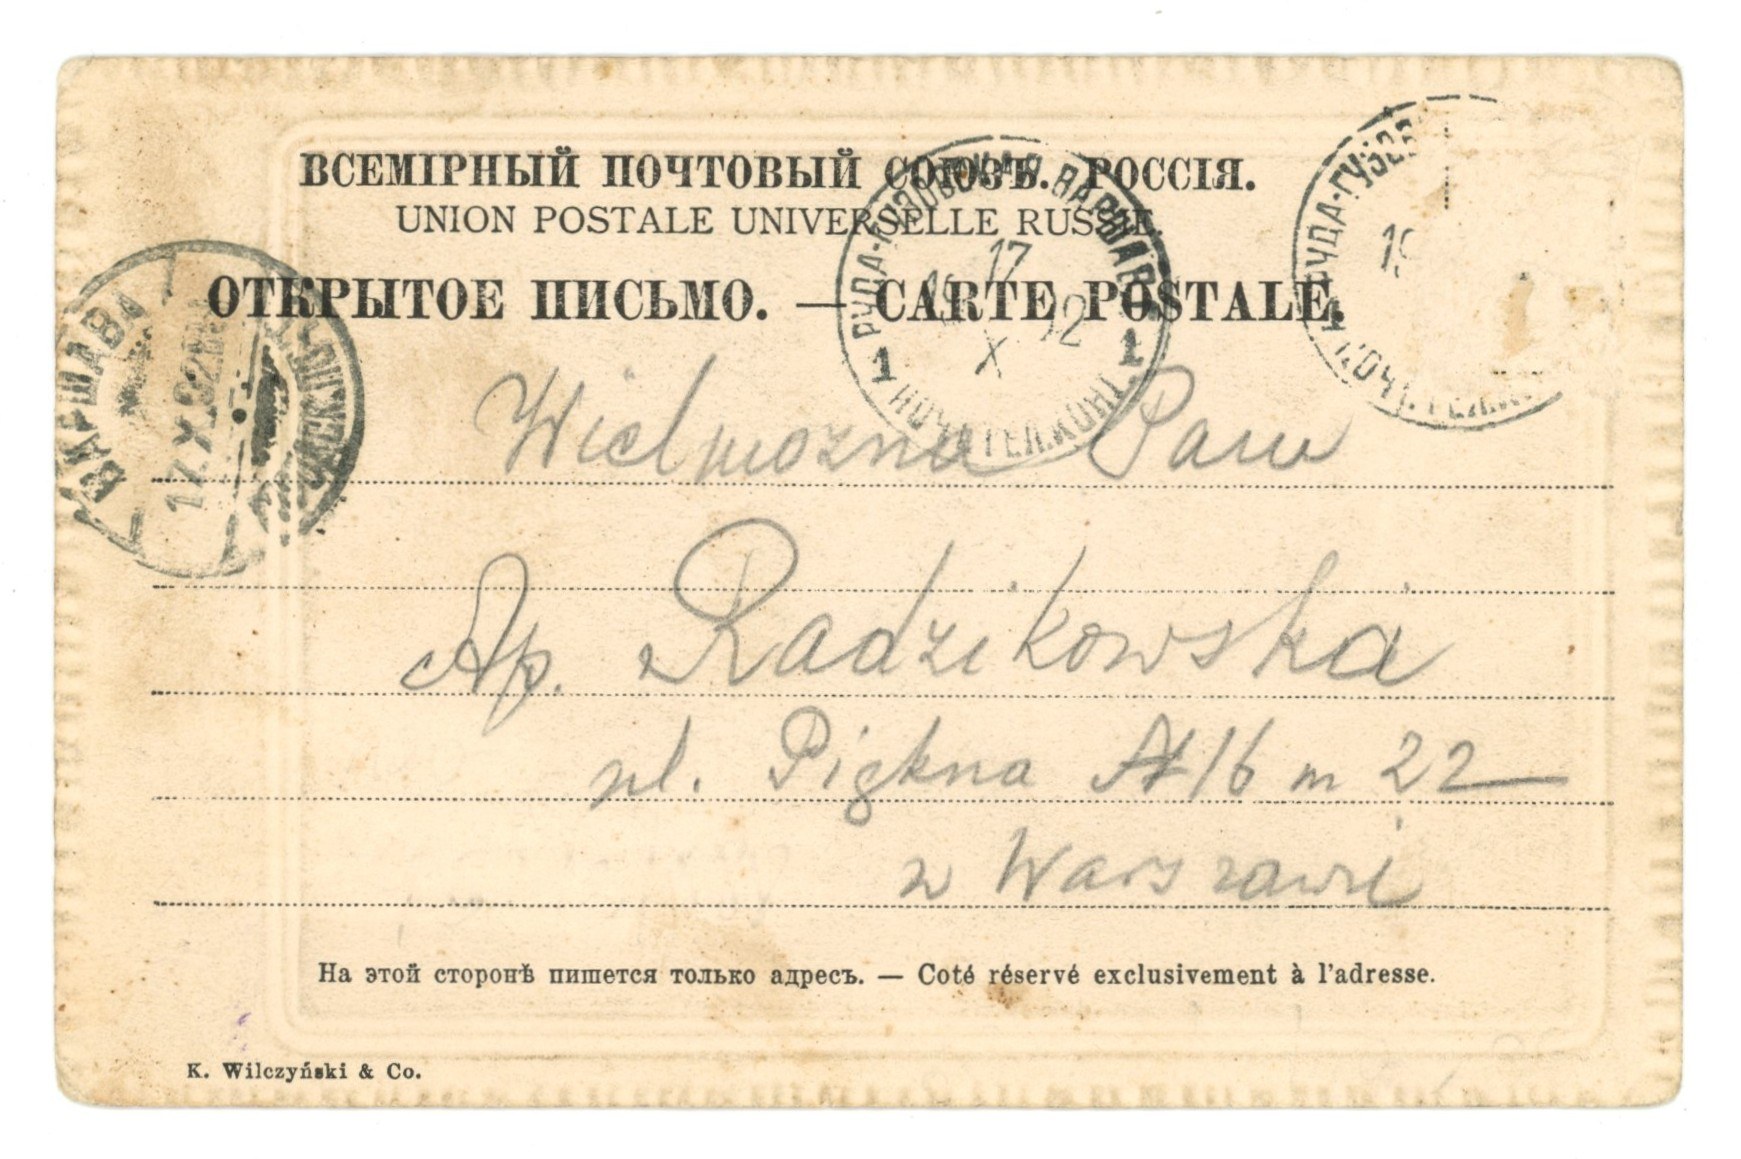 ВСЕМІРНЫЙ ПОЧТОВЫЙ СОЮЗЪ. РОССІЯ.
UNION POSTALE UNIVERSELLE RUSSIE.
ОТКРЫТОЕ ПИСЬМО. — CARTE POSTALE.
РУДА-ГУЗОВСКАЯ ВАРШАВ.
17
X 02
1 1
ПОЧТ. ТЕЛ. КОНТ.
РУДА-ГУЗОВ
ВАРШАВА
17.X.02
Wielmożna Pani
Ap. Radzikowska
ul. Piękna № 16 m 22
w Warszawie
На этой сторонѣ пишется только адресъ. — Coté réservé exclusivement à l'adresse.
K. Wilczyński & Co.